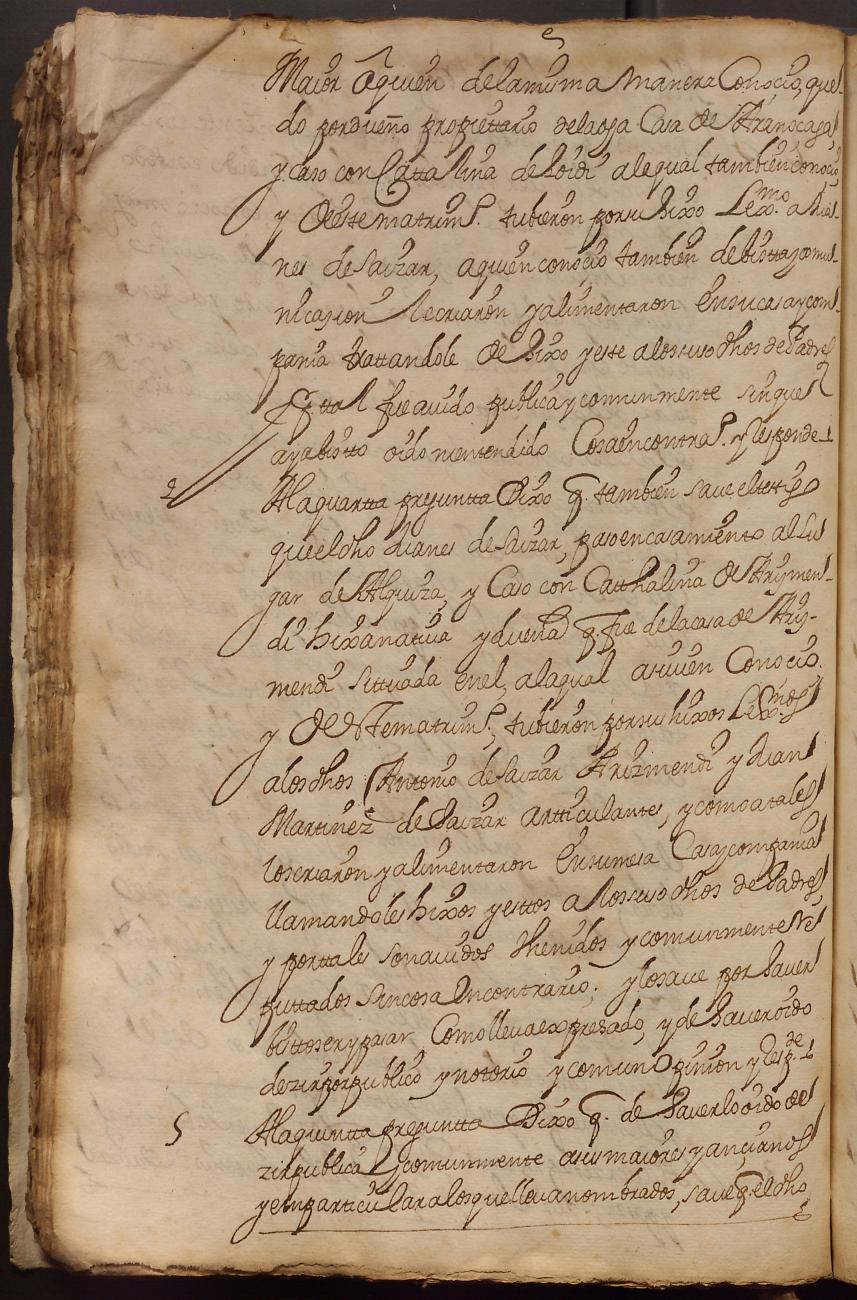 Maior a quien de la misma manera Conocio, que-
do por dueño propiettario de la dha Casa de Aranocaga,
y caso con Cattalina de Loidi a la qual tambien conocio
y de este matrim.º tubieron por su hixo Lexmo. a Dia-
nes de Saizar, a quien conocio tambien de bista y comu-
nicasion le criaron y alimentaron en su casa y com-
pania trattandole de hixo y este a los suso dhos de Padres
y por tal fue auido publica y comunmente sin que
aya bisto oido ni entendido Cosa en contraº. y responde
4 A la quartta preguntta Dixo q. tambien saue el testigo
que el dho dianes de Saizar, paso en casamiento al Lu
gar de Alquiza, y Caso con Catthalina de Arizmen-
di hixa natiua y dueña q. fue de la casa de Ariz-
mendi sittuada en el, a la qual assi uien Conocio.
y de este matrimº, tubieron por sus hixos Lexmos
a los dhos Antonio de Saizar Arizmendi y dian
Martinez de Saizar artticulantes, y como a tales
los criaron y alimentaron en su mesa Casa y compania
llamandoles hixos y esttos a los suso dhos de Padres
y por tales son auidos thenidos y comunmente Re
puttados sin cosa en contrario. y lo saue por hauer
bisto ser y pasar Como lleua expresado, y de hauer oido
dezir por publico y notorio y comun opinion y resp.de
5 A la quintta preguntta Dixo q. de hauerlo oido de
zir publica y comunmente a sus maiores y ancianos
y en particular a los que lleua nombrados, saue q. el dho